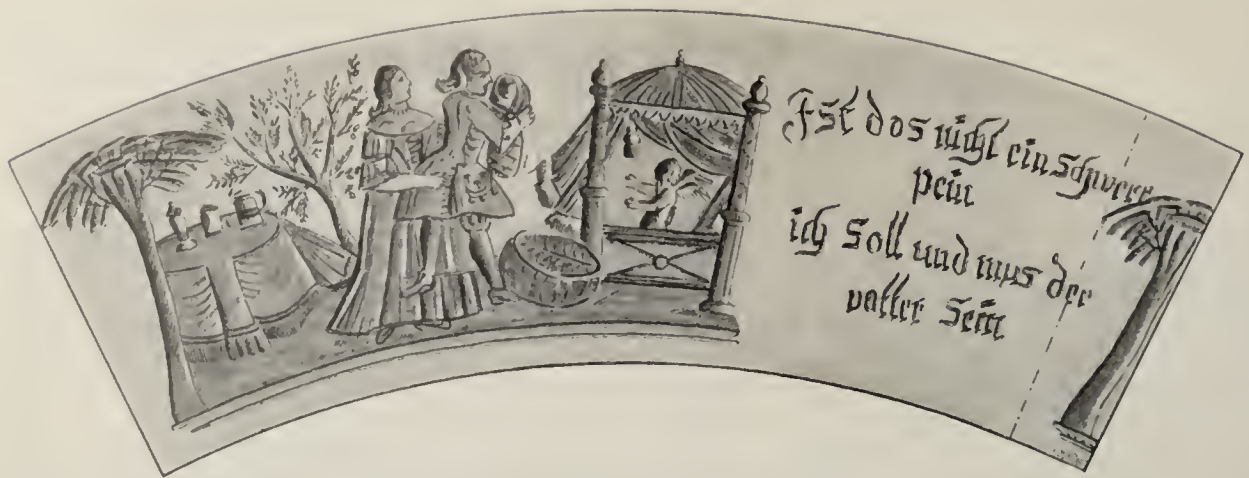 Ist dos nicht ein schwere
pein
ich soll und mus der
vatter sein